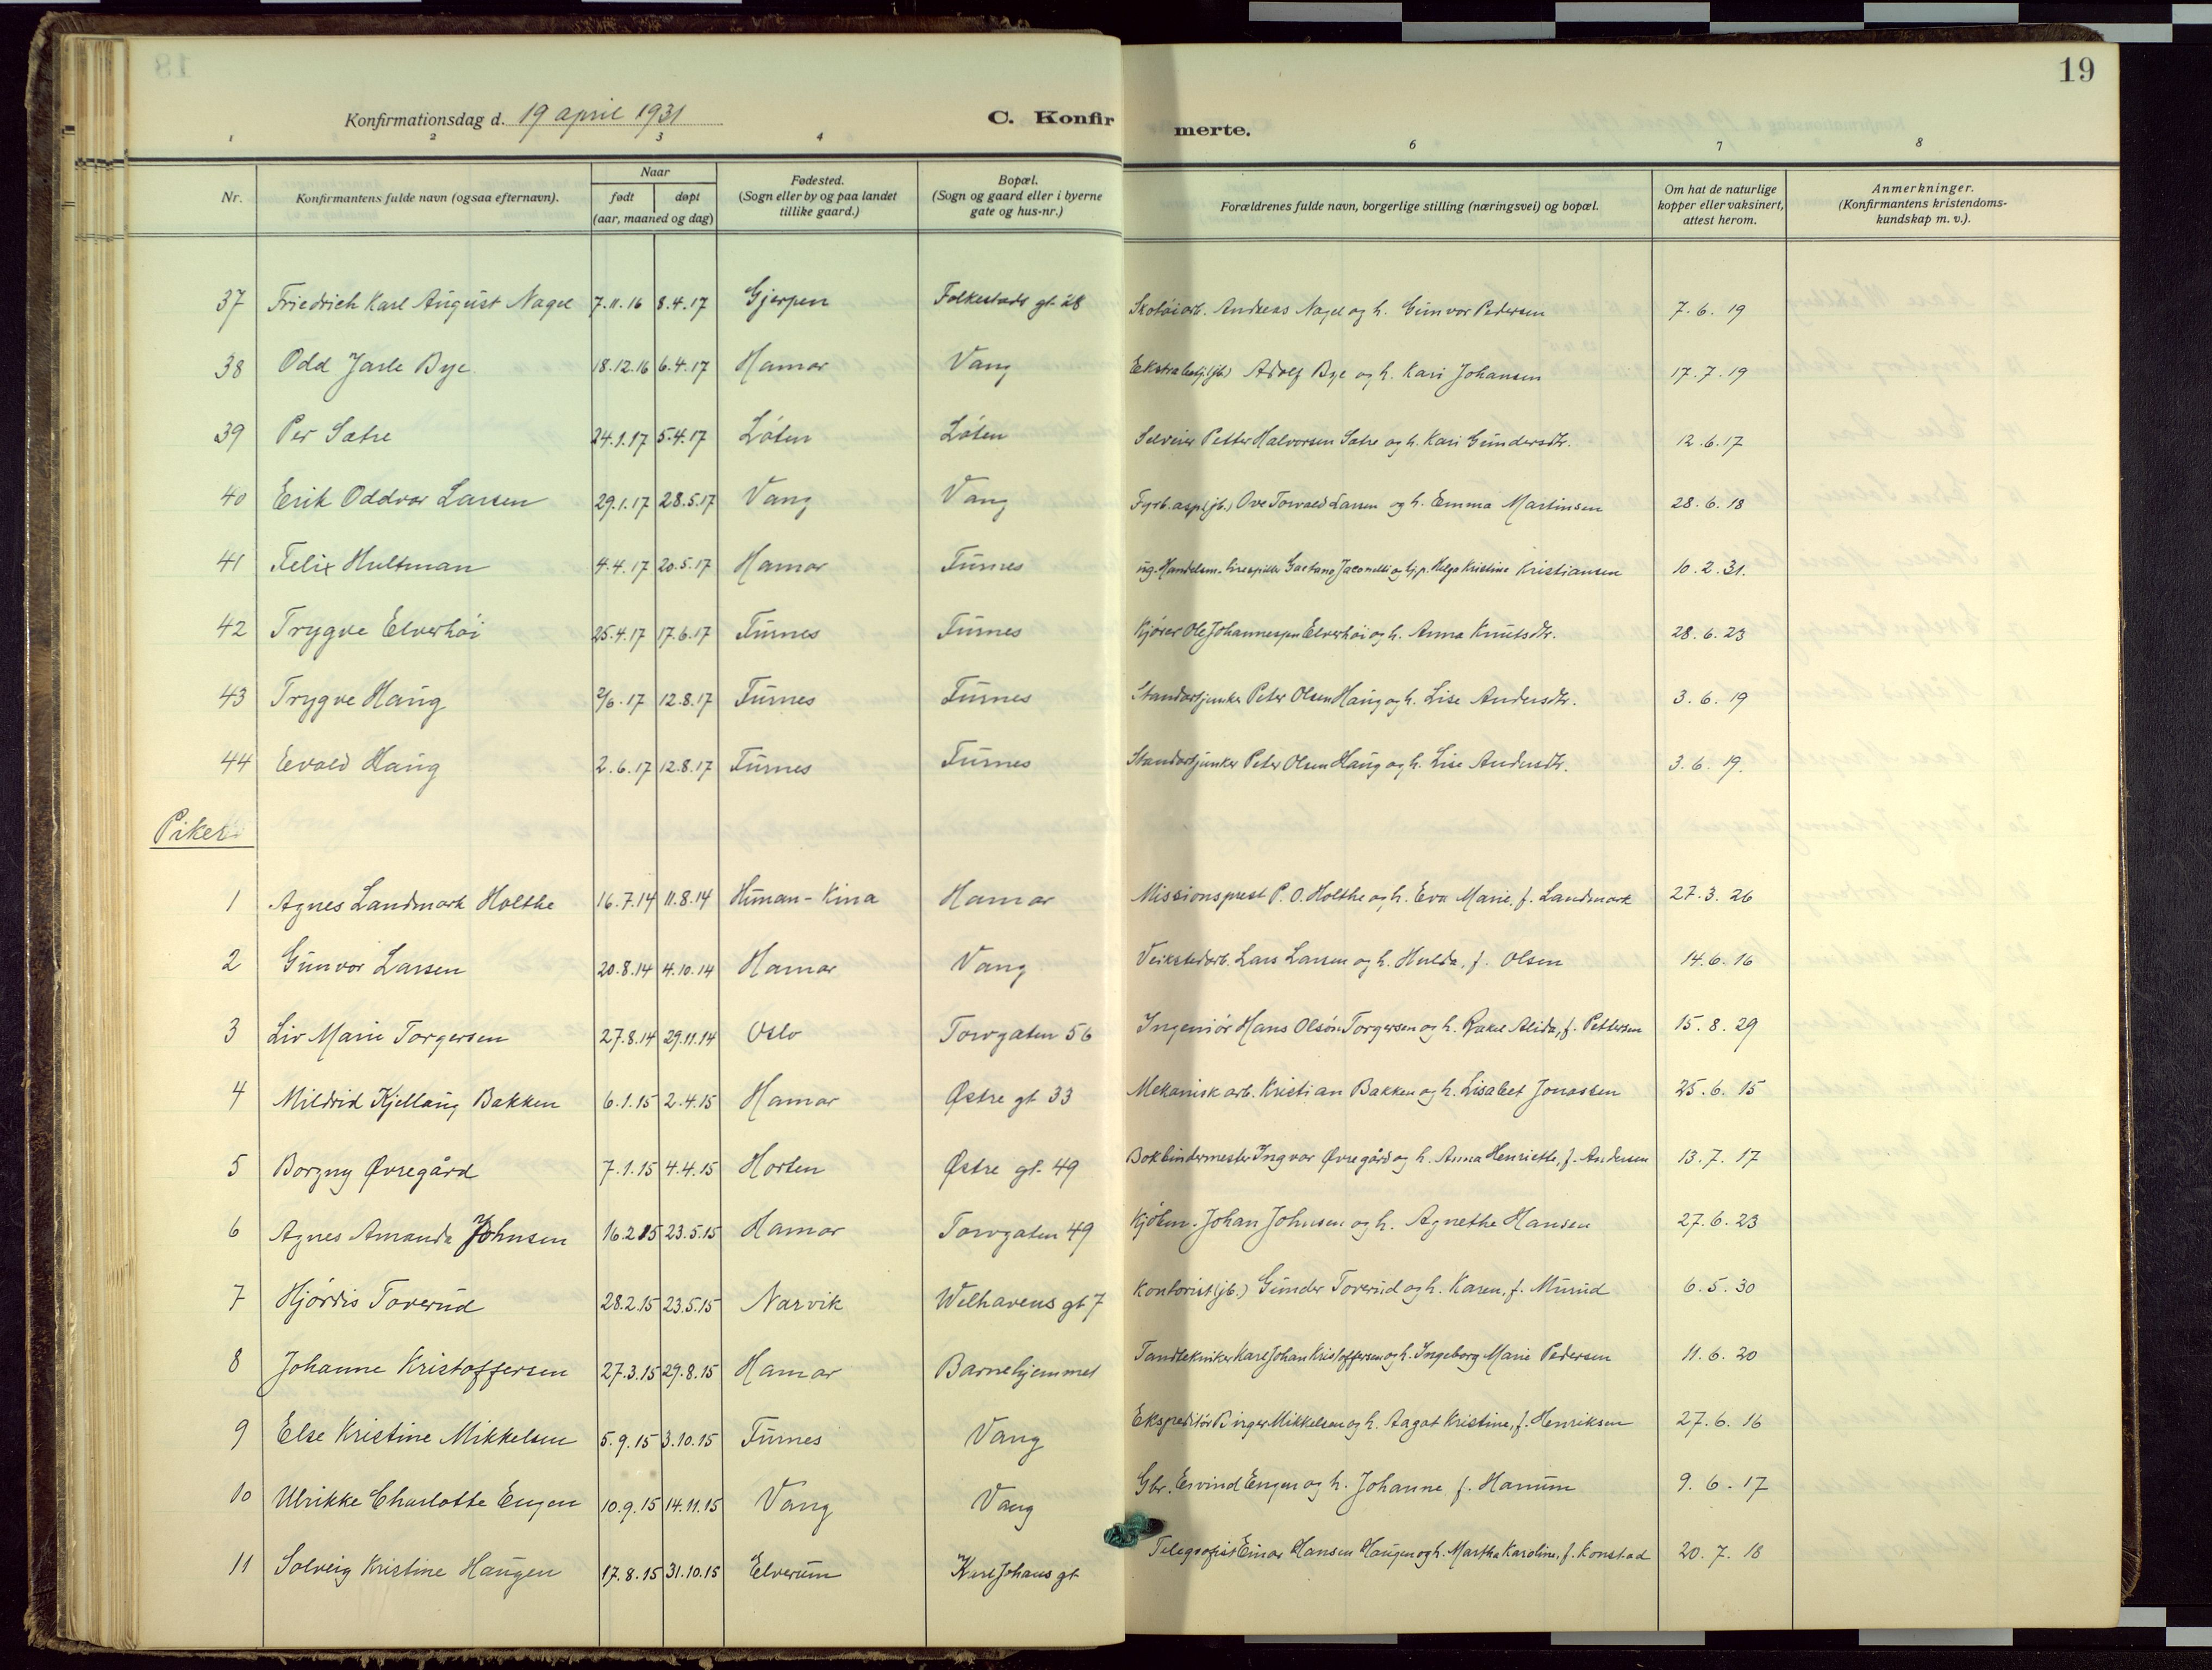 19
Konfirmationsdag d. 19 april 1931
C. Konfirmerte.
1 2 3 4 6 7 8
Nr. | Konfirmantens fulde navn (ogsaa efternavn). | Naar født døpt (aar, maaned og dag) | Fødested. (Sogn eller by og paa landet tillike gaard.) | Bopæl. (Sogn og gaard eller i byerne gate og hus-nr.) | Forældrenes fulde navn, borgerlige stilling (næringsvei) og bopæl. | Om hat de naturlige kopper eller vaksinert, attest herom. | Anmerkninger. (Konfirmantens kristendoms-kundskap m. v.).
37 Friedrich Karl August Nagel 7.11.16 8.4.17 Gjerpen Folkestads gt. 28 Skotöiarb. Andreas Nagel og h. Gunvor Pedersen 7.6.19
38 Odd Jarle Bye 18.12.16 6.4.17 Hamar Vang Ekstrabetj. (jb.) Adolf Bye og h. Kari Johansen 17.7.19
39 Per Sætre 24.1.17 5.4.17 Löten Löten Selveier Petter Halvorsen Sætre og h. Kari Gundersdtr. 12.6.17
40 Erik Oddvar Larsen 29.1.17 28.5.17 Vang Vang Fyrb.asp. (jb.) Ove Torvald Larsen og h. Emma Martinsen 28.6.18
41 Felix Hultman 4.4.17 20.5.17 Hamar Furnes ug. Handelsm. Gaetano Jaconelli og pj.p. Helga Kristine Kristiansen 10.2.31.
42 Trygve Elverhöi 25.4.17 17.6.17 Furnes Furnes Kjörer Ole Johannessen Elverhöi og h. Anna Knutsdtr. 28.6.23
43 Trygve Haug 2/6.17 12.8.17 Furnes Furnes Standartjunker Peter Olsen Haug og h. Lise Andersdtr. 3.6.19
44 Evald Haug 2.6.17 12.8.17 Furnes Furnes Standartjunker Peter Olsen Haug og h. Lise Andersdtr. 3.6.19.
Piker
1 Agnes Landmark Holthe 16.7.14 11.8.14 Hunan-Kina Hamar Missionsprest P.O. Holthe og h. Eva Marie, f. Landmark 27.3.26
2 Gunvor Larsen 20.8.14 4.10.14 Hamar Vang Verkstedarb. Lars Larsen og h. Hulda, f. Olsen 14.6.16
3 Liv Marie Torgersen 27.8.14 29.11.14 Oslo Torvgaten 56 Ingeniör Hans Olsön Torgersen og h. Rakel Alida, f. Pettersen 15.8.29
4 Mildrid Kjellaug Bakken 6.1.15 2.4.15 Hamar Østre gt 33 Mekanisk arb. Kristian Bakken og h. Lisabet Jonassen 25.6.15
5 Borgny Øvregård 7.1.15 4.4.15 Horten Østre gt. 49 Bokbindermester Ingvar Øvregård og h. Anna Henriette, f. Andersen 13.7.17
6 Agnes Amanda Johnsen 16.2.15 23.5.15 Hamar Torvgaten 49 Kjöbm. Johan Johnsen og h. Agnethe Hansen 27.6.23
7 Hjördis Toverud 28.2.15 23.5.15 Narvik Welhavens gt 7 Kontorist (jb.) Gunder Toverud og h. Karen, f. Murud 6.5.30
8 Johanne Kristoffersen 27.3.15 29.8.15 Hamar Barnehjemmet Tandtekniker Karl Johan Kristoffersen og h. Ingeborg Marie Pedersen 11.6.20
9 Else Kristine Mikkelsen 5.9.15 3.10.15 Furnes Vang Ekspeditör Birger Mikkelsen og h. Aagot Kristine, f. Henriksen 27.6.16
10 Ulrikke Charlotte Engen 10.9.15 14.11.15 Vang Vang Gbr. Eivind Engen og h. Johanne f. Hanum 9.6.17
11 Solveig Kristine Haugen 17.8.15 31.10.15 Elverum Karl Johans gt Telegrafist Einar Hansen Haugen og h. Martha Karoline, f. Konstad 20.7.18